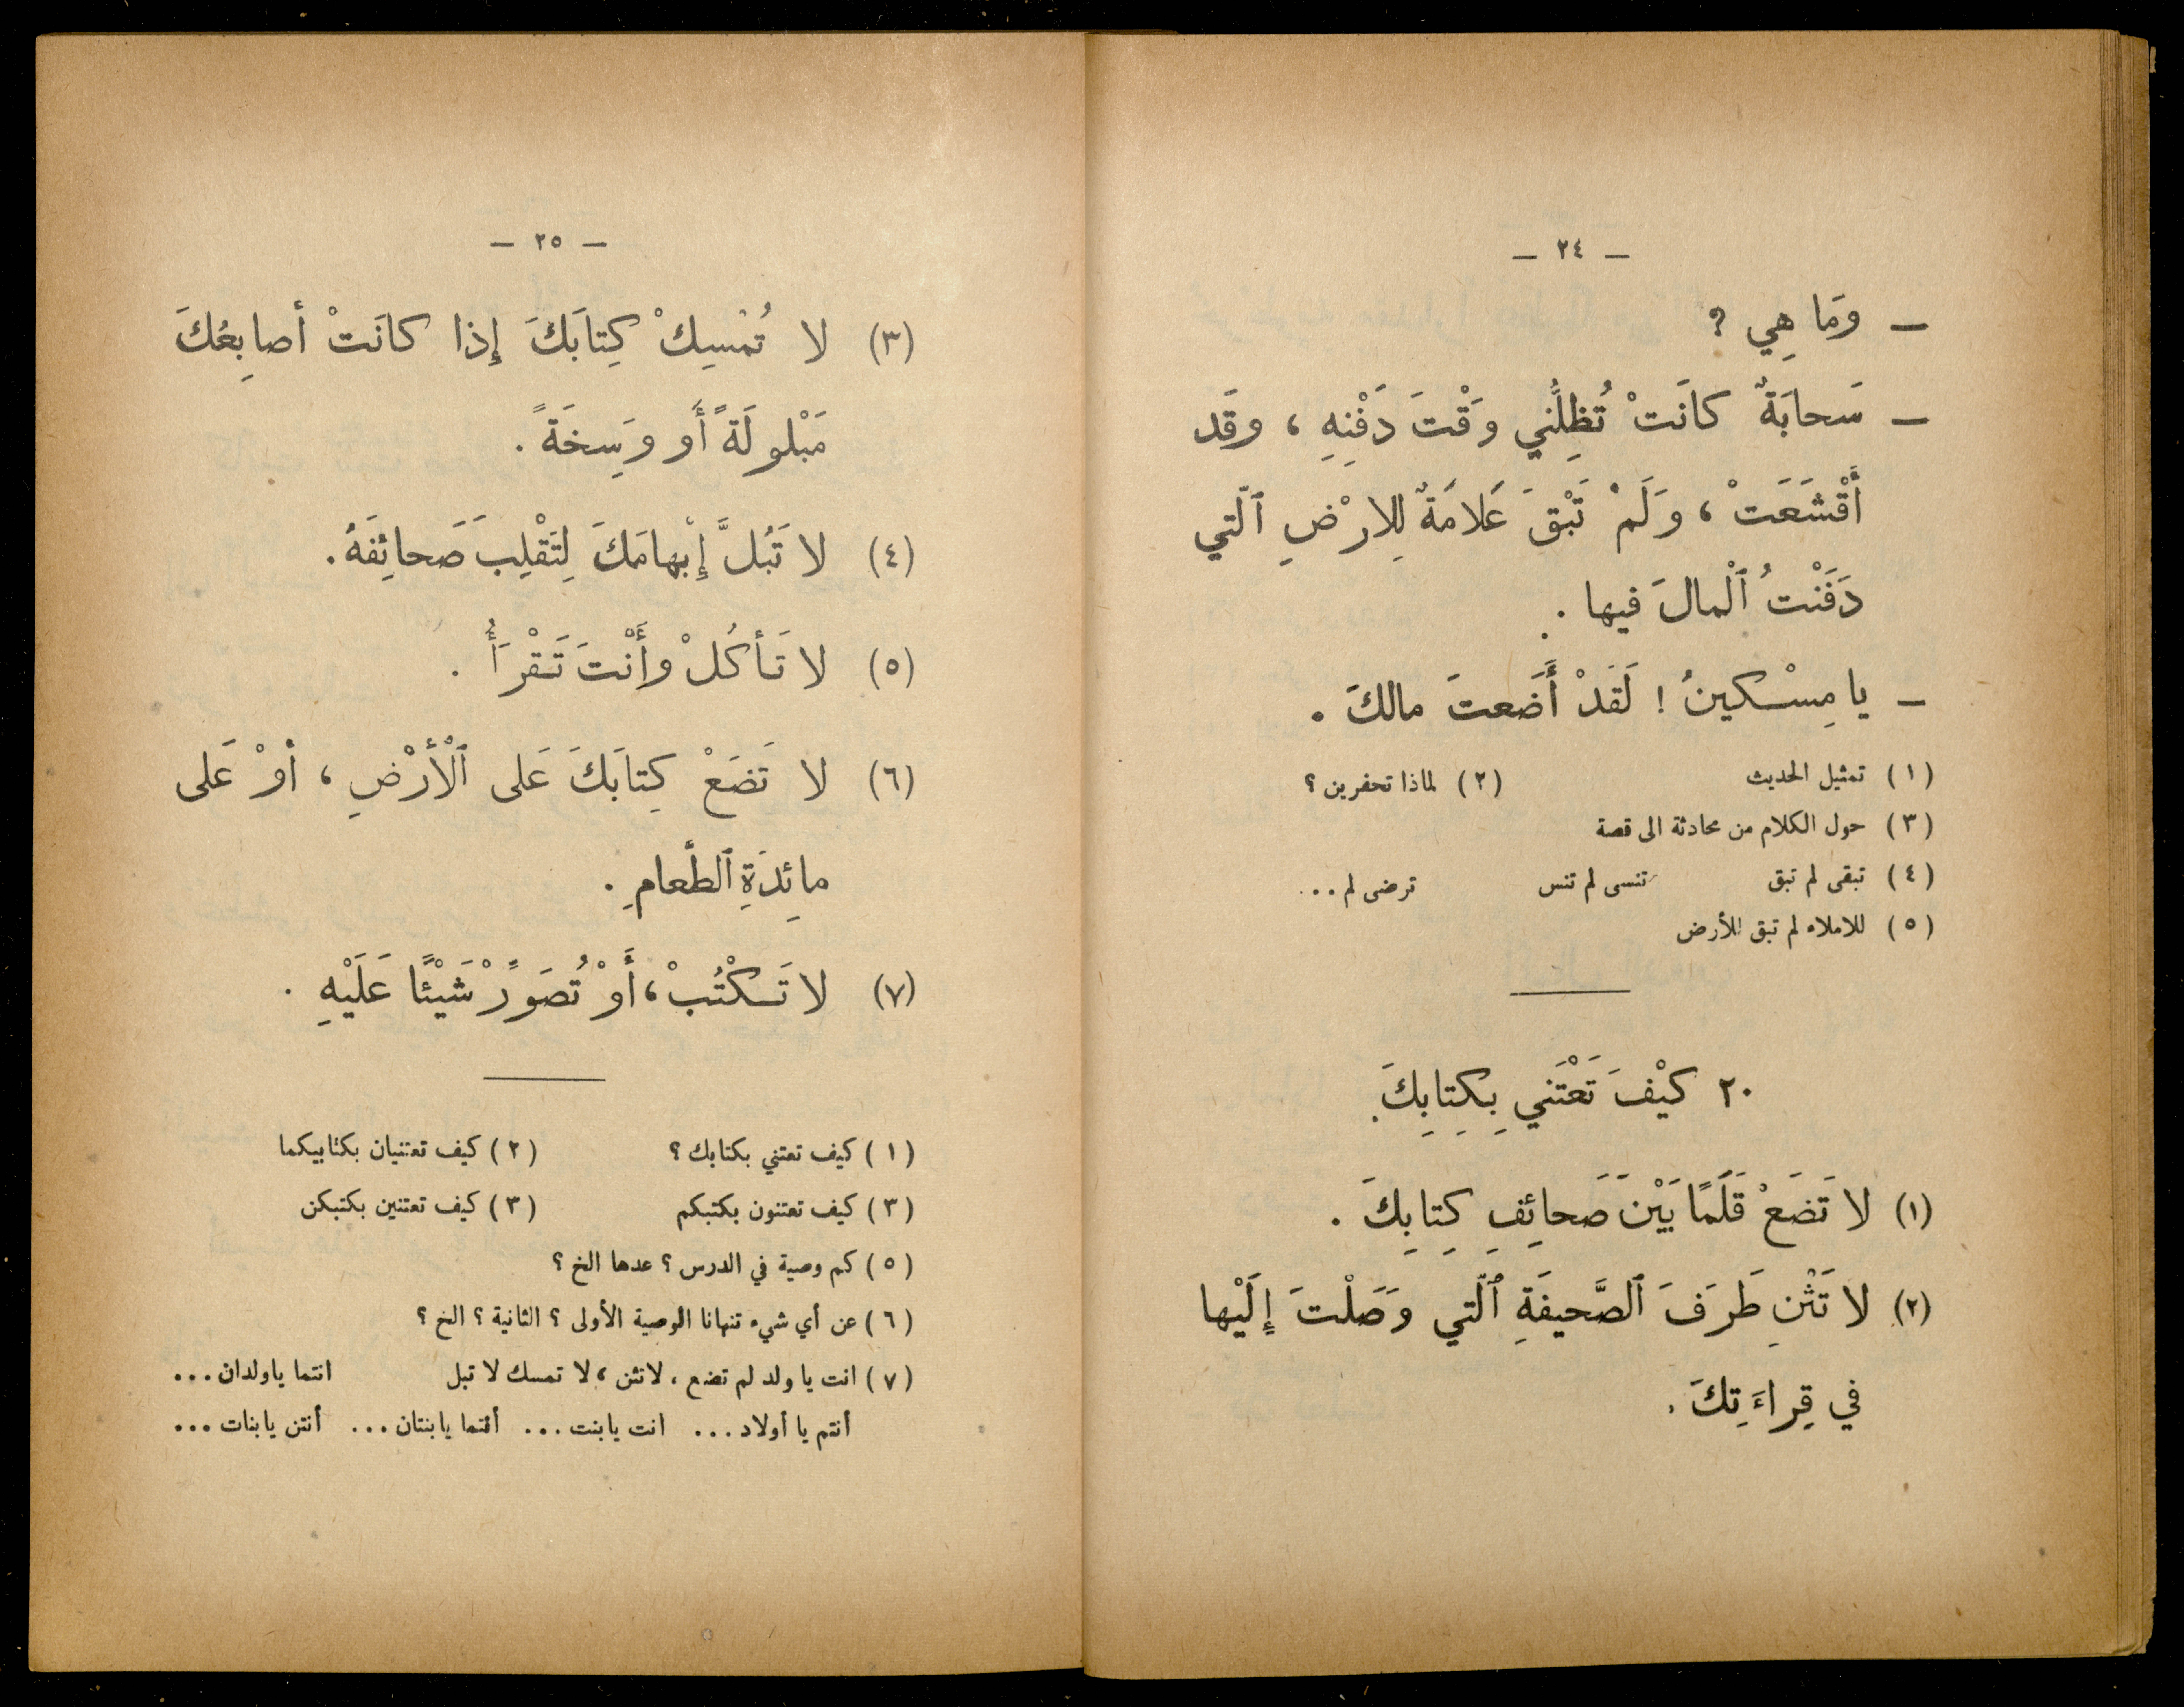 — ٢٤ —
— وَمَا هِي ؟
— سَحابَةٌ كانَتْ تُظِلُّني وَقْتَ دَفْنِهِ ، وقَد
أَقْشَعَتْ ، وَلَمْ تَبْقَ عَلامَةٌ لِلارْضِ ٱلّتي
دَفَنْتُ ٱلْمالَ فيها .
— يا مِسْكينُ ! لَقَدْ أَضَعتَ مالكَ .
(١) تمثيل الحديث (٢) لماذا تحفرين ؟
(٣) حول الكلام من محادثة الى قصة
(٤) تبقى لم تبق تنسى لم تنس ترضى لم ...
(٥) للاملاء لم تبق للأرض
٢٠ كَيْفَ تَعْتَني بِكِتابِكَ
(١) لا تَضَعْ قَلَمًا بَيْنَ صَحائِفِ كِتابِكَ .
(٢) لا تَثْنِ طَرَفَ ٱلصَّحيفَةِ ٱلّتي وَصَلْتَ إِلَيْها
في قِراءَتِكَ .
— ٢٥ —
(٣) لا تُمْسِكْ كِتابَكَ إِذا كانَتْ أصابِعُكَ
مَبْلولَةً أَو وَسِخَةً .
(٤) لا تَبُلَّ إِبْهامَكَ لِتَقْلِبَ صَحائِفَهُ .
(٥) لا تَأكُلْ وأَنْتَ تَقْرَأُ .
(٦) لا تَضَعْ كِتابَكَ عَلى ٱلْأَرْضِ ، أوْ عَلى
مائِدَةِ ٱلطَّعامِ .
(٧) لا تَكْتُبْ ، أَوْ تُصَوِّرْ شَيْئًا عَلَيْهِ .
(١) كيف تعتني بكتابك ؟ (٢) كيف تعتنيان بكتابيكما
(٣) كيف تعتنون بكتبكم (٣) كيف تعتنين بكتبكن
(٥) كم وصية في الدرس ؟ عدها الخ ؟
(٦) عن أي شيء تنهانا الوصية الأولى ؟ الثانية ؟ الخ ؟
(٧) انت يا ولد لم تضع ، لاتثن ، لا تمسك لا تبل انتما ياولدان ...
أنتم يا أولاد ... انت يابنت ... أنتما يابنتان ... أنتن يابنات ...